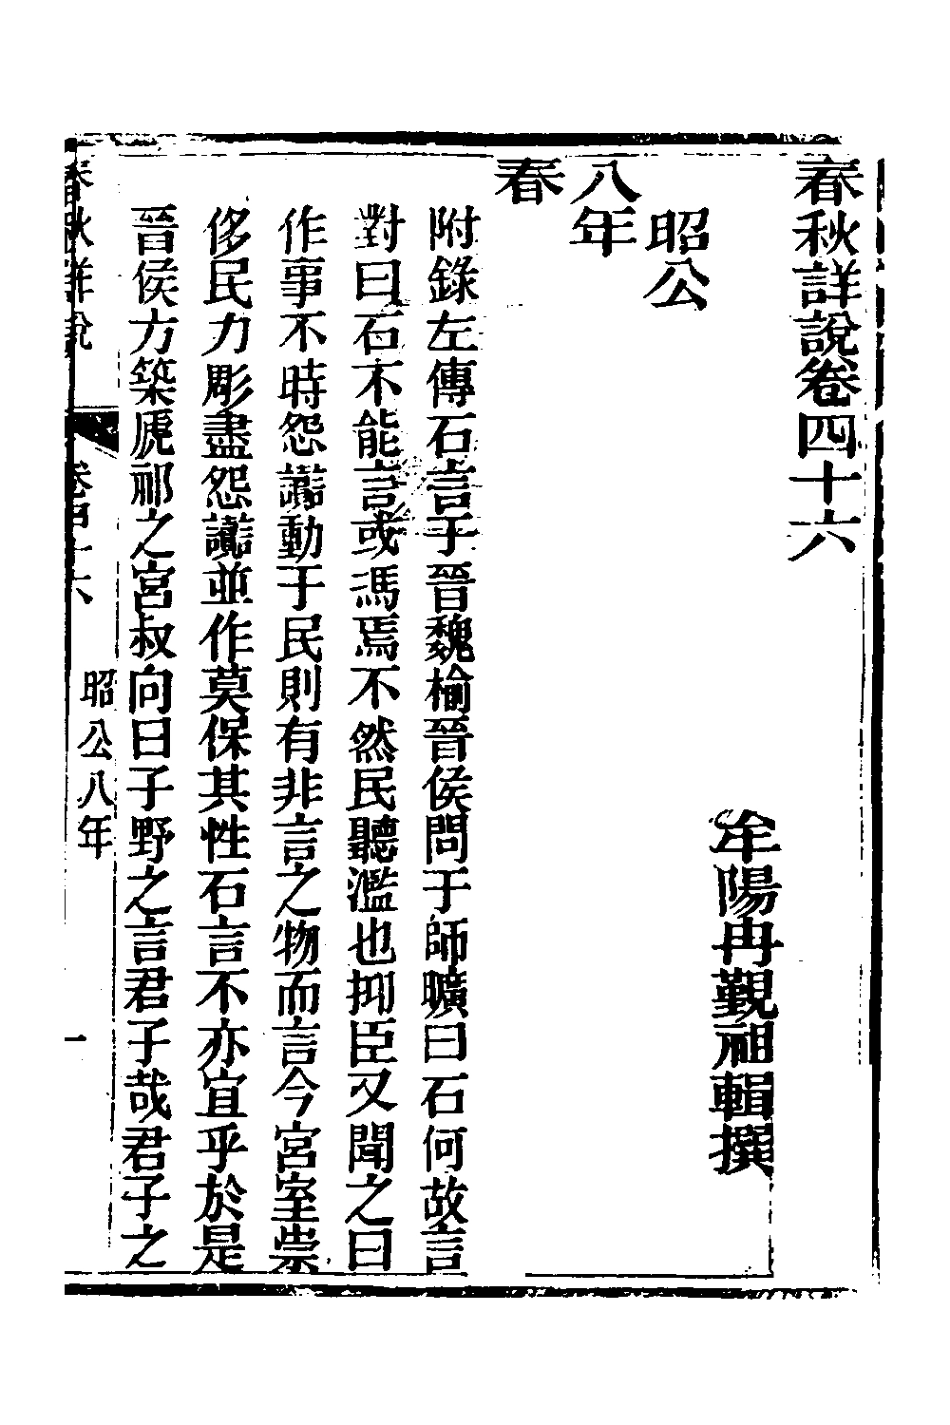 春秋詳說卷四十六
牟陽冉覲祖輯撰
昭公
八年
春
附錄左傳石言于晉魏榆晉侯問于師曠曰石何故言
對曰石不能言或馮焉不然民聽濫也抑臣又聞之曰
作事不時怨讟動于民則有非言之物而言今宮室崇
侈民力彫盡怨讟並作莫保其性石言不亦宜乎於是
晉侯方築虒祁之宮叔向曰子野之言君子哉君子之
春秋詳說 卷四十六 昭公八年 一